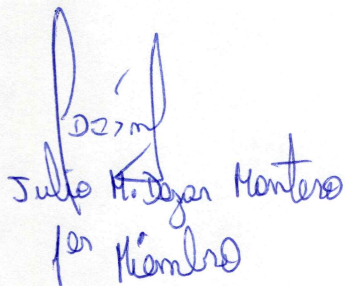 Julio M. Dozar Montero
1er Miembro